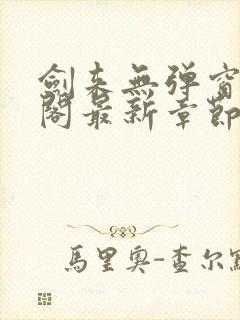 劍来無弹窗
閣最新章節
馬里奥-查尔